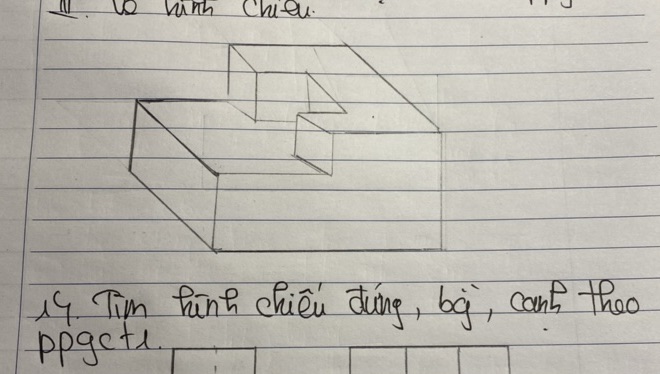 III. Vẽ hình chiếu.
19. Tìm hình chiếu đứng, bằng, cạnh theo
ppgct1.